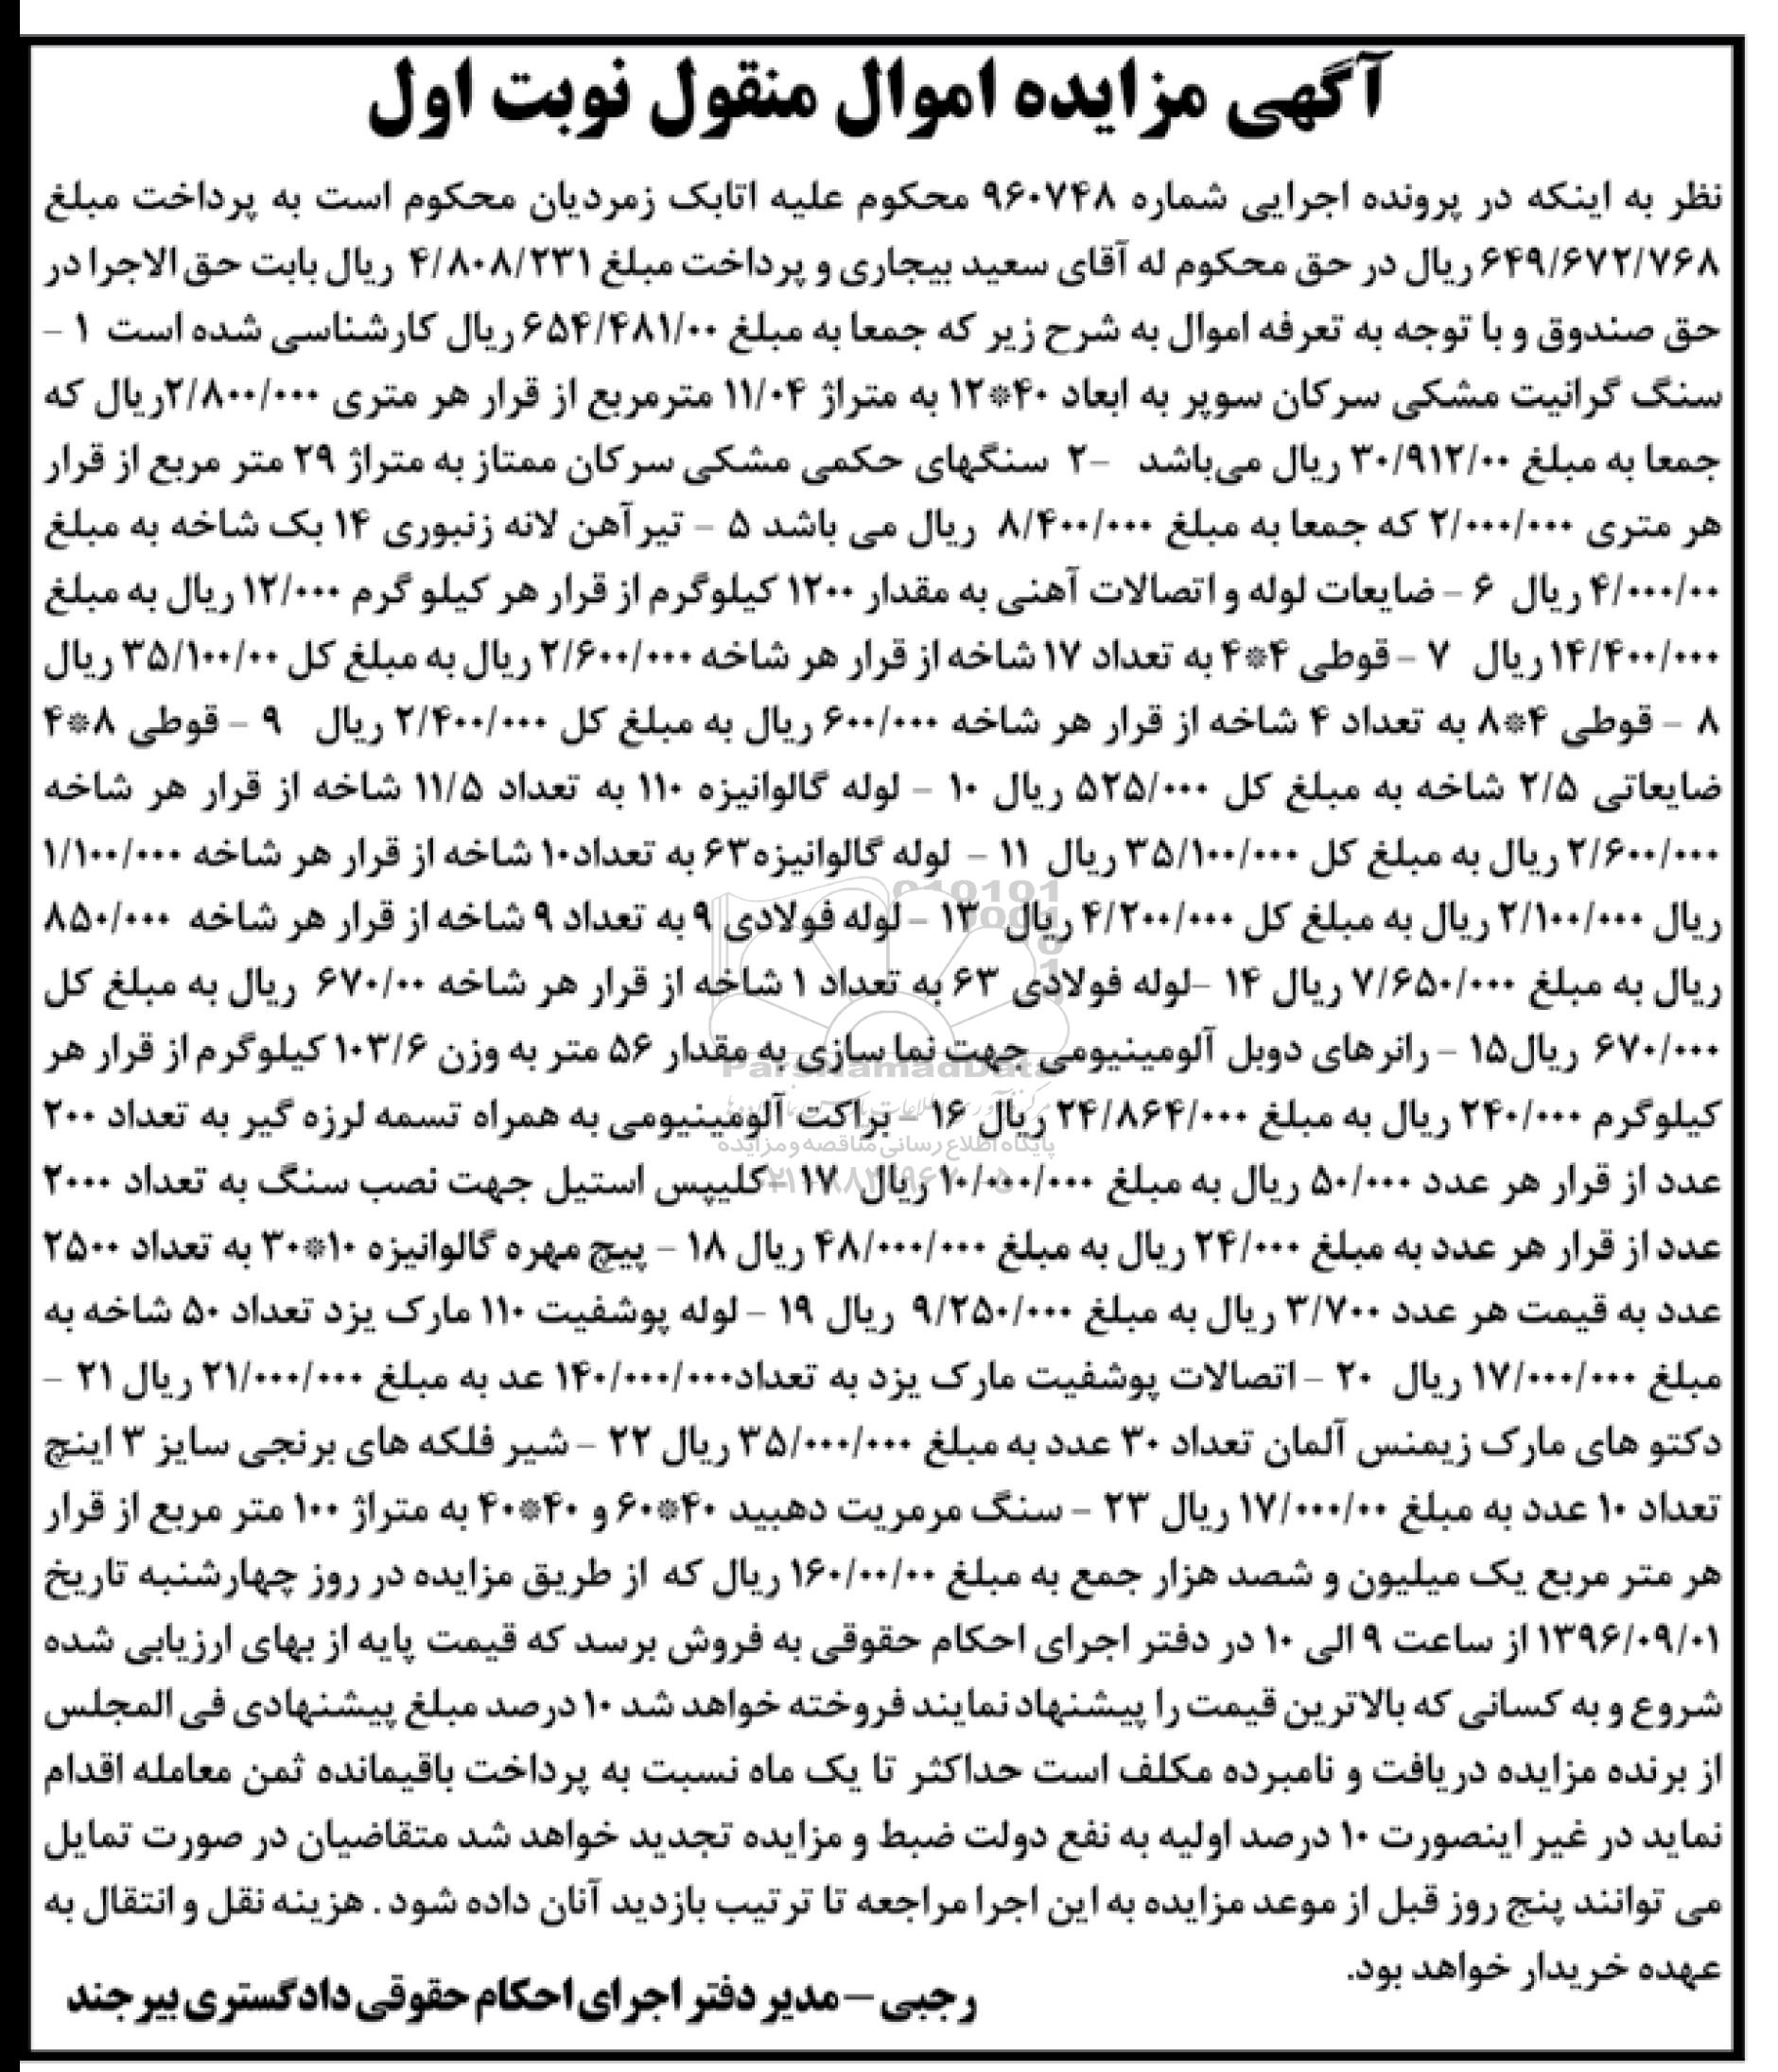 آگهی مزایده اموال منقول نوبت اول
نظر به اینکه در پرونده اجرایی شماره ۹۶۰۷۴۸ محکوم علیه اتابک زمردیان محکوم است به پرداخت مبلغ
۶۴۹/۶۷۲/۷۶۸ ریال در حق محکوم له آقای سعید بیجاری و پرداخت مبلغ ۴/۸۰۸/۲۳۱ ریال بابت حق الاجرا در
حق صندوق و با توجه به تعرفه اموال به شرح زیر که جمعا به مبلغ ۶۵۴/۴۸۱/۰۰ ریال کارشناسی شده است ۱ –
سنگ گرانیت مشکی سرکان سوپر به ابعاد ۴۰*۱۲ به متراژ ۱۱/۰۴ مترمربع از قرار هر متری ۲/۸۰۰/۰۰۰ریال که
جمعا به مبلغ ۳۰/۹۱۲/۰۰ ریال می‌باشد –۲ سنگهای حکمی مشکی سرکان ممتاز به متراژ ۲۹ متر مربع از قرار
هر متری ۲/۰۰۰/۰۰۰ که جمعا به مبلغ ۸/۴۰۰/۰۰۰ ریال می باشد ۵ – تیرآهن لانه زنبوری ۱۴ بک شاخه به مبلغ
۴/۰۰۰/۰۰ ریال ۶ – ضایعات لوله و اتصالات آهنی به مقدار ۱۲۰۰ کیلوگرم از قرار هر کیلو گرم ۱۲/۰۰۰ ریال به مبلغ
۱۴/۴۰۰/۰۰۰ریال ۷ – قوطی ۴*۴ به تعداد ۱۷ شاخه از قرار هر شاخه ۲/۶۰۰/۰۰۰ ریال به مبلغ کل ۳۵/۱۰۰/۰۰ ریال
۸ – قوطی ۴*۸ به تعداد ۴ شاخه از قرار هر شاخه ۶۰۰/۰۰۰ ریال به مبلغ کل ۲/۴۰۰/۰۰۰ ریال ۹ – قوطی ۸*۴
ضایعاتی ۲/۵ شاخه به مبلغ کل ۵۲۵/۰۰۰ ریال ۱۰ – لوله گالوانیزه ۱۱۰ به تعداد ۱۱/۵ شاخه از قرار هر شاخه
۲/۶۰۰/۰۰۰ ریال به مبلغ کل ۳۵/۱۰۰/۰۰۰ ریال ۱۱ – لوله گالوانیزه۶۳ به تعداد۱۰ شاخه از قرار هر شاخه ۱/۱۰۰/۰۰۰
ریال ۲/۱۰۰/۰۰۰ ریال به مبلغ کل ۴/۲۰۰/۰۰۰ ریال ۱۳ – لوله فولادی ۹ به تعداد ۹ شاخه از قرار هر شاخه ۸۵۰/۰۰۰
ریال به مبلغ ۷/۶۵۰/۰۰۰ ریال ۱۴ –لوله فولادی ۶۳ به تعداد ۱ شاخه از قرار هر شاخه ۶۷۰/۰۰ ریال به مبلغ کل
۶۷۰/۰۰۰ ریال۱۵ – رانرهای دوبل آلومینیومی جهت نما سازی به مقدار ۵۶ متر به وزن ۱۰۳/۶ کیلوگرم از قرار هر
ParsNamadData
کیلوگرم ۲۴۰/۰۰۰ ریال به مبلغ ۲۴/۸۶۴/۰۰۰ ریال ۱۶ – براکت آلومینیومی به همراه تسمه لرزه گیر به تعداد ۲۰۰
پایگاه اطلاع رسانی مناقصه و مزایده
عدد از قرار هر عدد ۵۰/۰۰۰ ریال به مبلغ ۱۰/۰۰۰/۰۰۰ ریال ۱۷ –کلیپس استیل جهت نصب سنگ به تعداد ۲۰۰۰
عدد از قرار هر عدد به مبلغ ۲۴/۰۰۰ ریال به مبلغ ۴۸/۰۰۰/۰۰۰ ریال ۱۸ – پیچ مهره گالوانیزه ۱۰*۳۰ به تعداد ۲۵۰۰
عدد به قیمت هر عدد ۳/۷۰۰ ریال به مبلغ ۹/۲۵۰/۰۰۰ ریال ۱۹ – لوله پوشفیت ۱۱۰ مارک یزد تعداد ۵۰ شاخه به
مبلغ ۱۷/۰۰۰/۰۰۰ ریال ۲۰ – اتصالات پوشفیت مارک یزد به تعداد۱۴۰/۰۰۰/۰۰۰ عد به مبلغ ۲۱/۰۰۰/۰۰۰ ریال ۲۱ –
دکتو های مارک زیمنس آلمان تعداد ۳۰ عدد به مبلغ ۳۵/۰۰۰/۰۰۰ ریال ۲۲ – شیر فلکه های برنجی سایز ۳ اینچ
تعداد ۱۰ عدد به مبلغ ۱۷/۰۰۰/۰۰ ریال ۲۳ – سنگ مرمریت دهبید ۴۰*۶۰ و ۴۰*۴۰ به متراژ ۱۰۰ متر مربع از قرار
هر متر مربع یک میلیون و شصد هزار جمع به مبلغ ۱۶۰/۰۰/۰۰ ریال که از طریق مزایده در روز چهارشنبه تاریخ
۱۳۹۶/۰۹/۰۱ از ساعت ۹ الی ۱۰ در دفتر اجرای احکام حقوقی به فروش برسد که قیمت پایه از بهای ارزیابی شده
شروع و به کسانی که بالاترین قیمت را پیشنهاد نمایند فروخته خواهد شد ۱۰ درصد مبلغ پیشنهادی فی المجلس
از برنده مزایده دریافت و نامبرده مکلف است حداکثر تا یک ماه نسبت به پرداخت باقیمانده ثمن معامله اقدام
نماید در غیر اینصورت ۱۰ درصد اولیه به نفع دولت ضبط و مزایده تجدید خواهد شد متقاضیان در صورت تمایل
می توانند پنج روز قبل از موعد مزایده به این اجرا مراجعه تا ترتیب بازدید آنان داده شود . هزینه نقل و انتقال به
عهده خریدار خواهد بود.
رجبی – مدیر دفتر اجرای احکام حقوقی دادگستری بیرجند